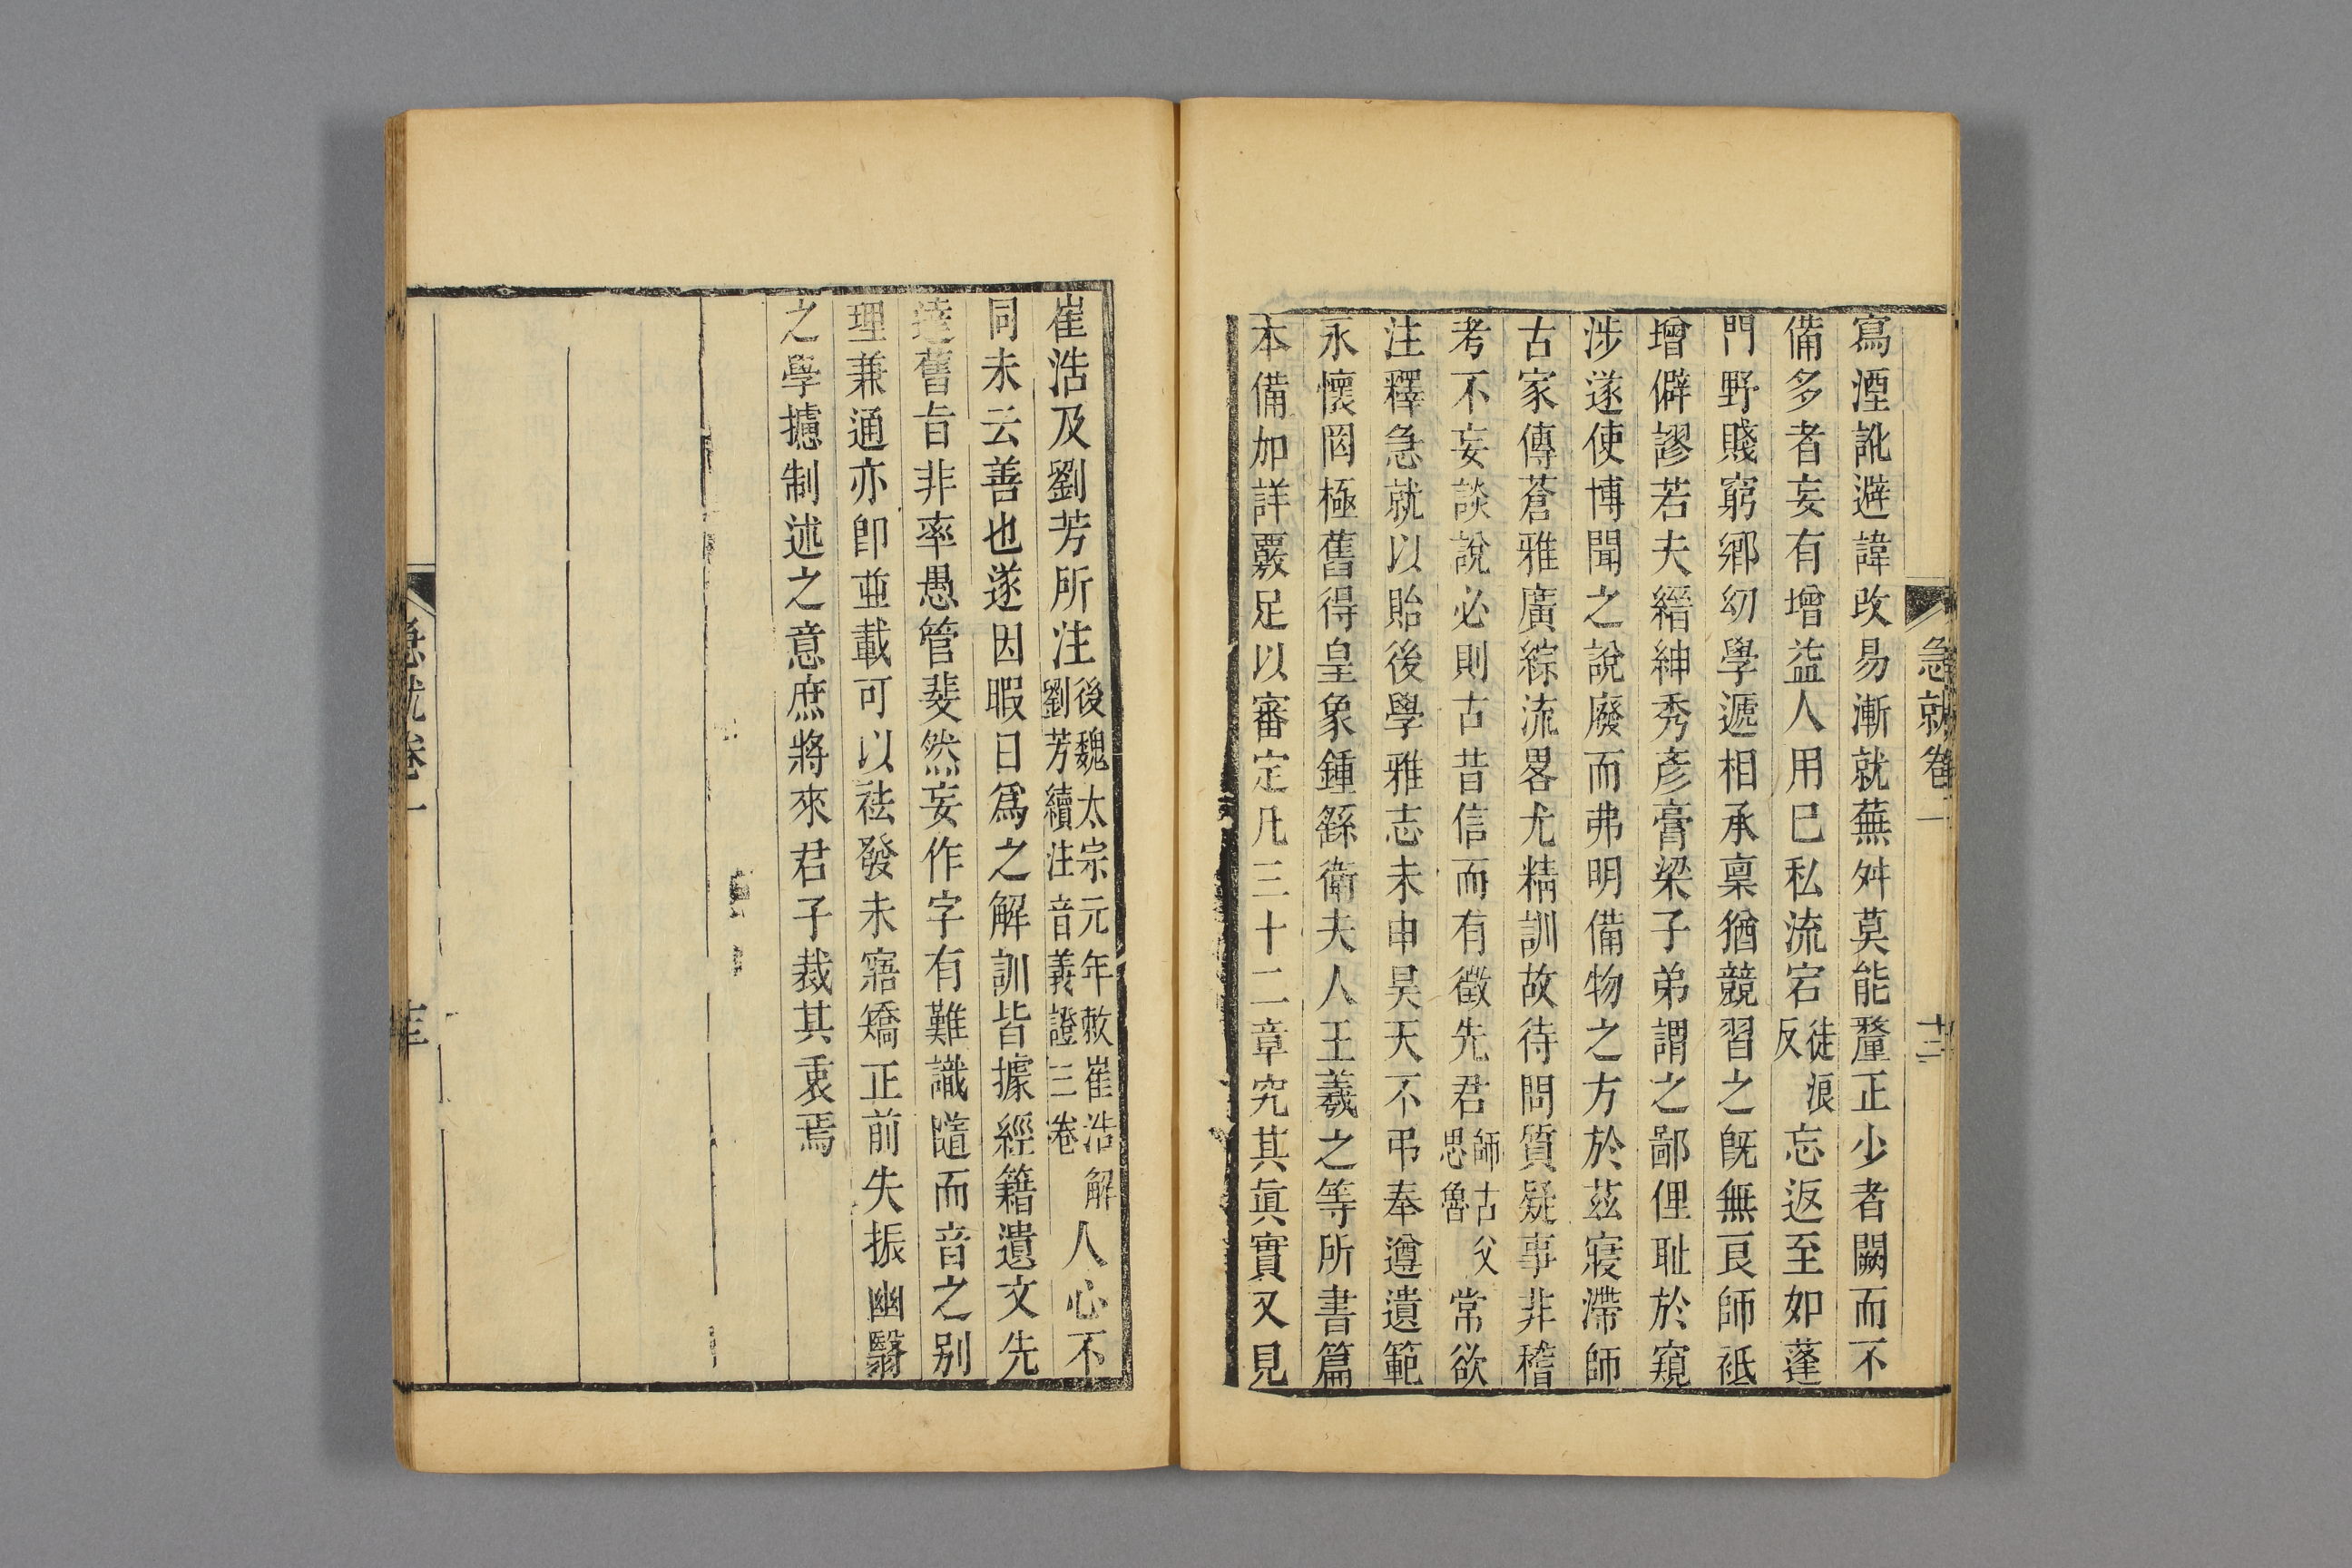 急就卷一
十三
寫湮訛避諱改易漸就蕪舛莫能釐正少者闕而不
備多者妄有增益人用已私流宕徒浪反忘返至如蓬
門野賤窮鄉幼學遞相承稟猶競習之旣無良師祗
增僻謬若夫縉紳秀彥膏粱子弟謂之鄙俚耻於窺
涉遂使博聞之說廢而弗明備物之方於茲寢滯師
古家傳蒼雅廣綜流畧尤精訓故待問質疑事非稽
考不妄談說必則古昔信而有徵先君師古父思魯常欲
注釋急就以貽後學雅志未申昊天不弔奉遵遺範
永懷罔極舊得皇象鍾繇衛夫人王羲之等所書篇
本備加詳覈足以審定凡三十二章究其眞實又見
崔浩及劉芳所注後魏太宗元年敕崔浩解劉芳續注音義證三卷人心不
同未云善也遂因暇日爲之解訓皆據經籍遺文先
達舊旨非率愚管斐然妄作字有難識隨而音之别
理兼通亦卽並載可以袪發未寤矯正前失振幽翳
之學攄制述之意庶將來君子裁其衷焉
急就卷一